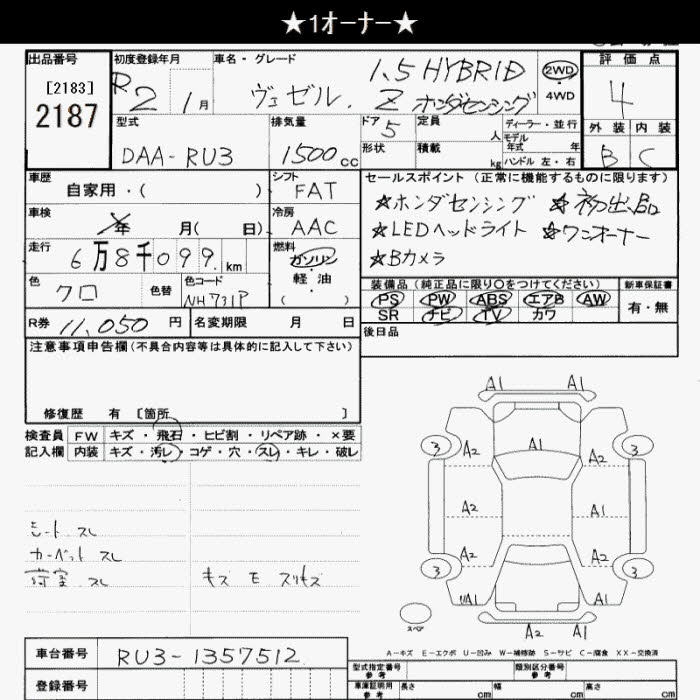 ★1オーナー★
出品番号 初度登録年月 車名・グレード 評価点
[2183] R2 1月 ヴェゼル. 1.5 HYBRID Z ホンダセンシング 2WD 4WD 4
2187
型式 排気量 ドア 5 定員 人 ディーラー・並行 外装 内装
DAA-RU3 1500cc 形状 積載 kg モデル年式 年 ハンドル 左・右 B C
車歴 シフト セールスポイント (正常に機能するものに限ります)
自家用・( ) FAT ★ホンダセンシング ★初出品
車検 年 月( 日) 冷房 AAC ★LEDヘッドライト ★ワンオーナー
走行 6万8千099km 燃料 ガソリン ★Bカメラ
軽油
( )
色 クロ 色替 色コード NH731P
装備品 (純正品に限り○をつけてください) 新車保証書
PS PW ABS エアB AW 有・無
SR ナビ TV カワ
R券 11,050円 名変期限 月 日 後日品
注意事項申告欄(不具合内容等は具体的に記入して下さい)
修復歴 有 [箇所 ]
検査員 FW キズ・飛石・ヒビ割・リペア跡・×要
記入欄 内装 キズ・汚レ・コゲ・穴・スレ・キレ・破レ
A1 A1
3 A2 A1 A2 3
A2 A1
3 A2 A2 3
A1 A1
A2 A1
スペア
シート スレ
カーペット スレ
荷室 スレ キズ モ スリキズ
A-キズ E-エクボ U-凹み W-補修跡 S-サビ C-腐食 XX-交換済
車台番号 RU3-1357512 型式指定番号 参考 類別区分番号 参考
登録番号 車庫証明用 参考 長さ cm 幅 cm 高さ cm